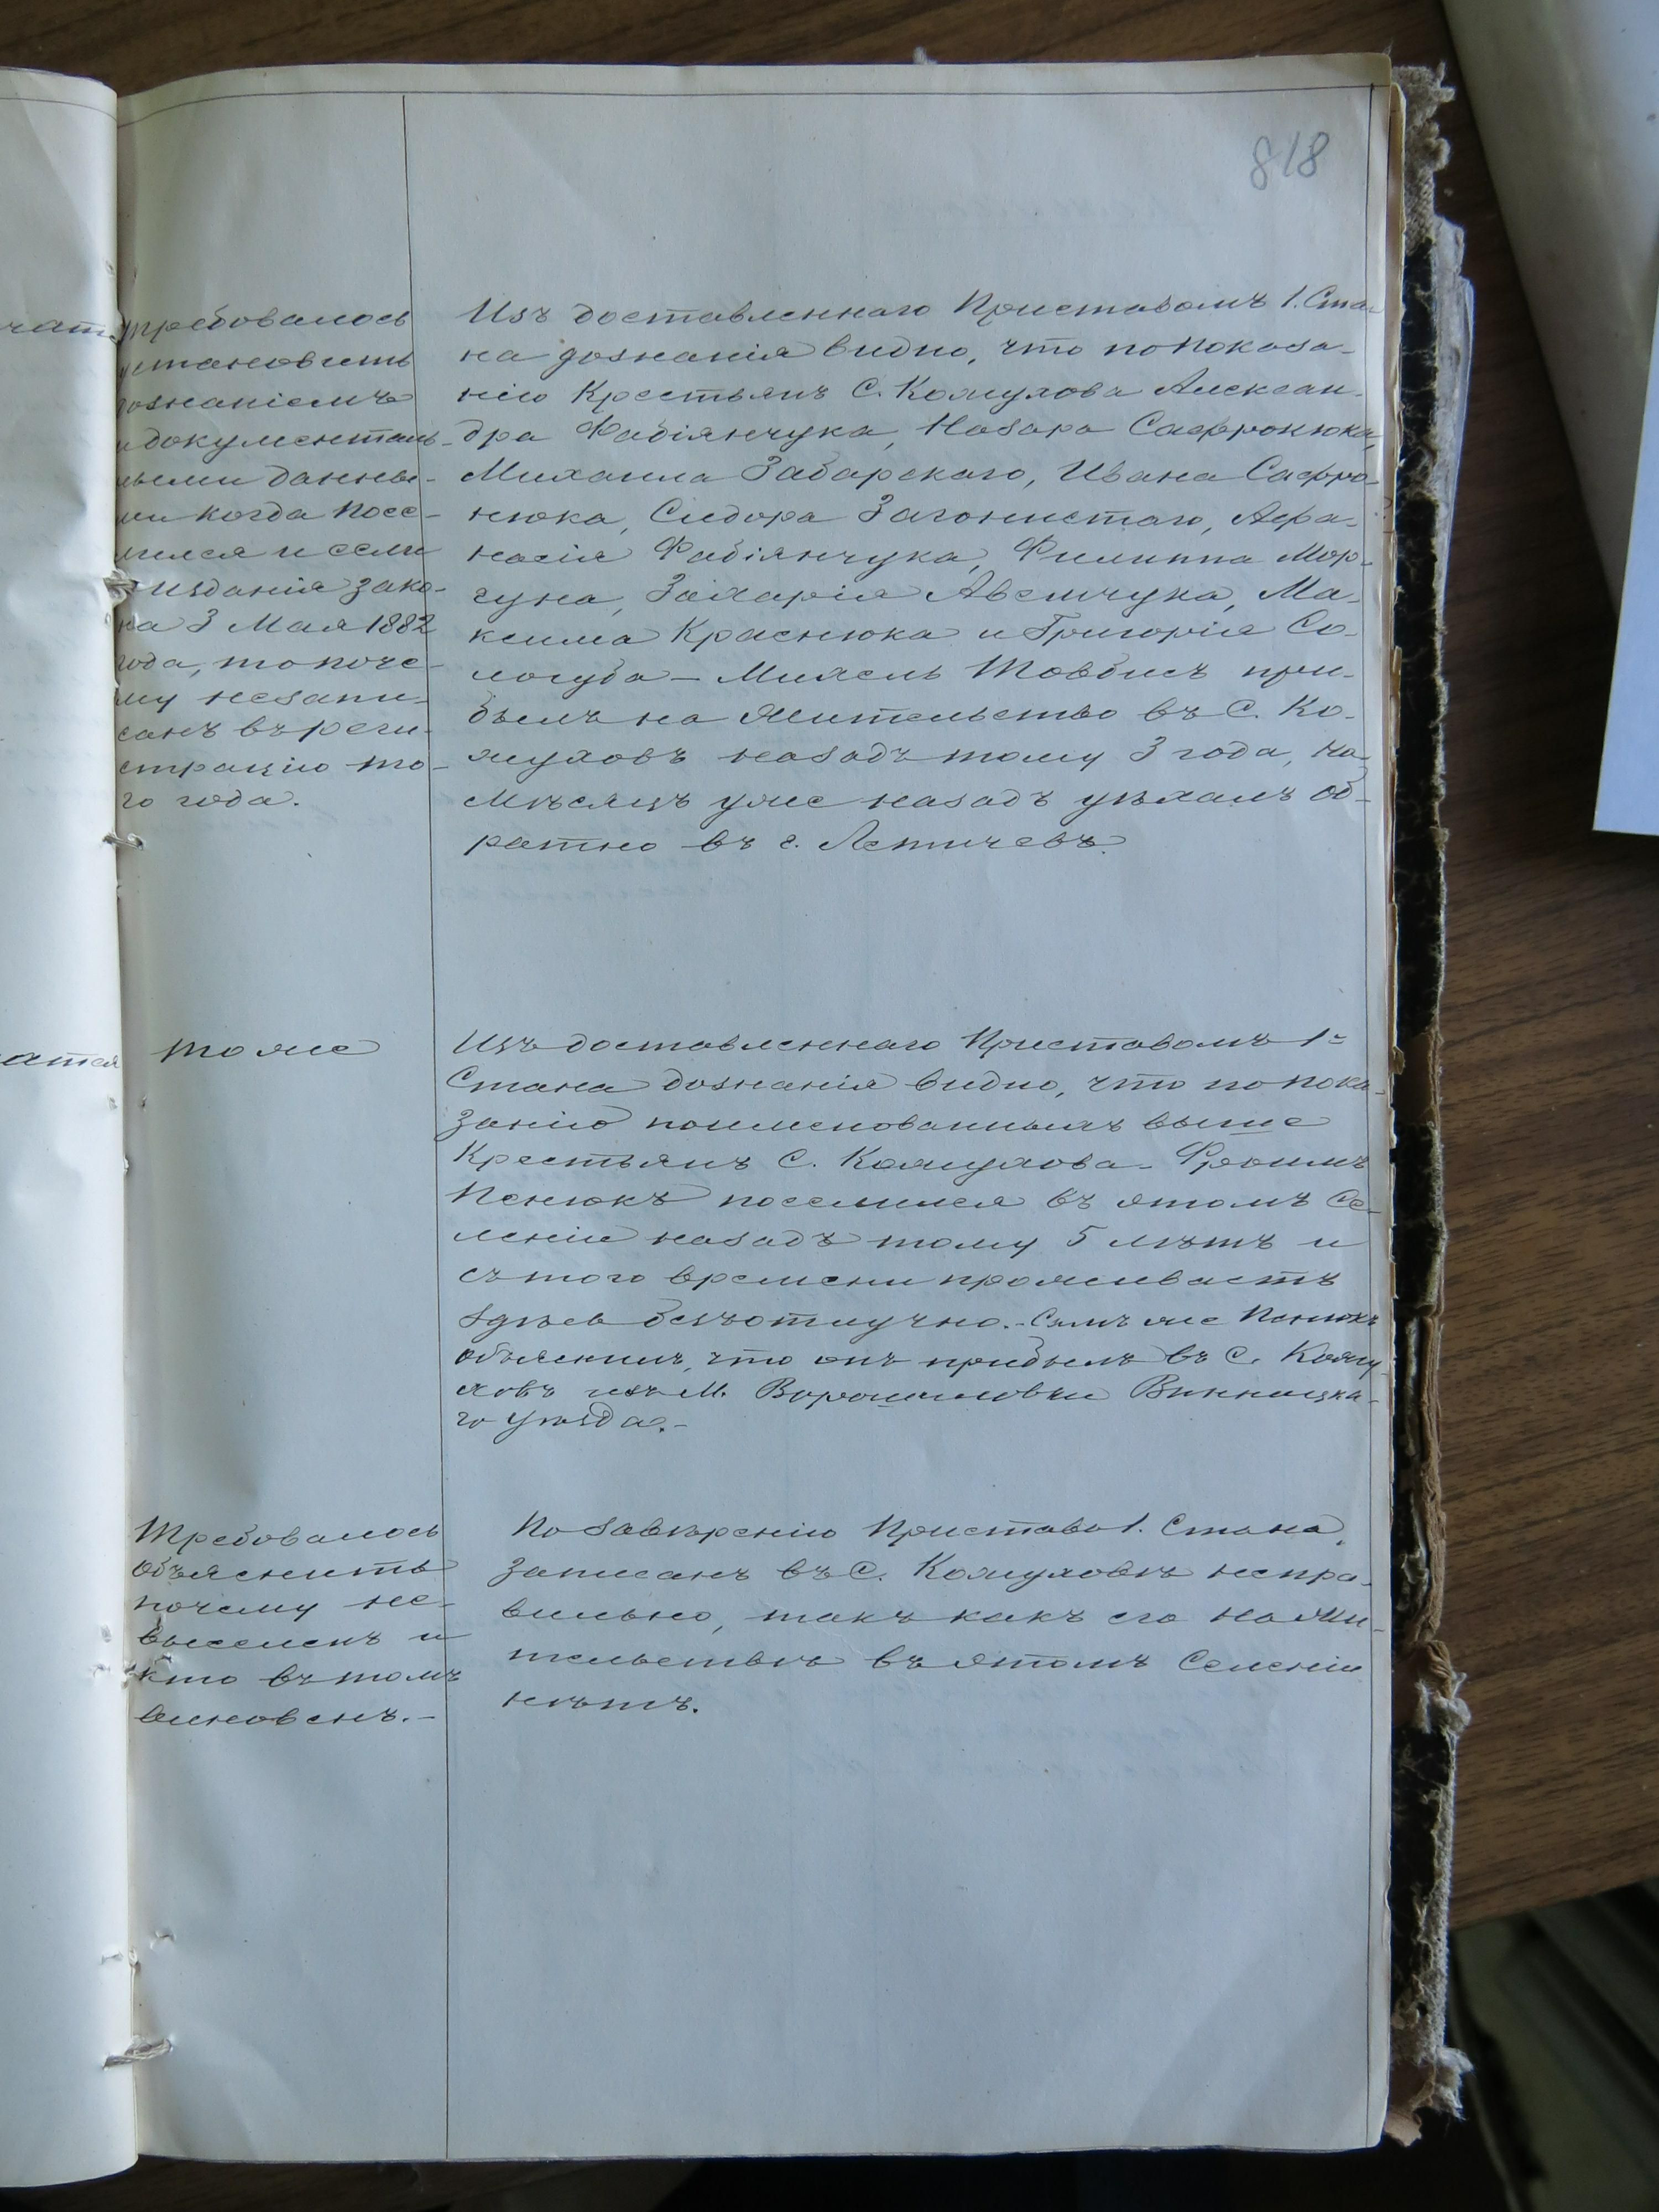 818
Требовалось
установить
дознаніемъ
и документаль-
ными данны-
ми когда посе-
лился и если
изданія зако-
на 3 Мая 1882
года, то поче-
му незапи-
санъ въ реги-
страцію то-
го года.
Изъ доставленнаго Приставомъ 1. Ста-
на дознанія видно, что по показа-
нію Крестьянъ С. Кожухова Алексан-
дра Фабіянчука, Назара Сафронюка,
Михаила Забарскаго, Ивана Сафро-
нюка, Сидора Загонистаго, Афа-
насія Фабіянчука, Филиппа Мор-
гуна, Захарія Авсичука, Ма-
ксима Краснюка и Григорія Со-
логуба – Михель Товбисъ при-
былъ на Жительство въ С. Ко-
жуховъ назадъ тому 3 года, на
мѣсяцъ уже назадъ уѣхалъ об-
ратно въ г. Летичевъ.
тоже
Изъ доставленнаго Приставомъ 1-
Стана дознанія видно, что по пока-
занію поименованныхъ выше
Крестьянъ С. Кожухова – Фроимъ
Пенюкъ поселился въ этомъ Се-
леніи назадъ тому 5 лѣтъ и
съ того времени проживаетъ
здѣсь безъотлучно. – Самъ же Пенюкъ
объяснилъ, что онъ прибылъ въ С. Кожу-
ховъ изъ М. Ворошиловки Винницка-
го уѣзда. –
Требовалось
объяснить
почему не-
выселенъ и
кто въ томъ
виновенъ. –
По завѣренію Пристава 1. Стана,
записанъ въ С. Кожуховѣ непра-
вильно, такъ какъ его на жи-
тельствѣ въ этомъ Селеніи
нѣтъ.